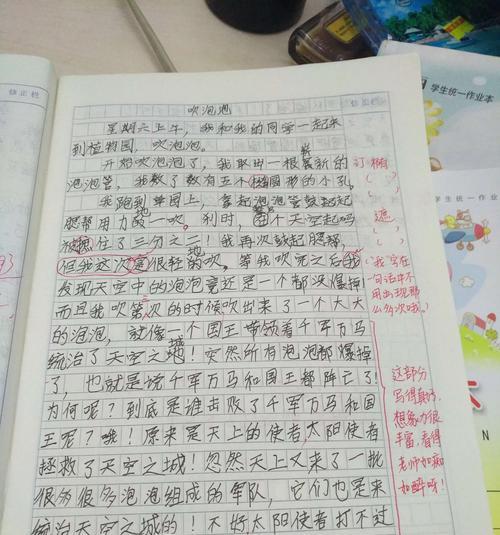 吹泡泡
星期六上午，我和我的同学一起来
到植物园，吹泡泡。
开始吹泡泡了，我取出一根最新的
泡泡管，我数了数有五个椭圆形的小孔。
我跑到草园上，拿起泡泡管鼓起
腮帮用力地一吹。利时，整个天空起吗
被遮住了三分之二！我再次鼓起腮帮，
但我这次是很轻的吹。等我吹完之后我
发现天空中的泡泡竟还是一个都没爆掉
而且我吹第次的时候吹出来了一个大大
的泡泡，就像一个国王带领着千军万马
统治了天空之城！突然所有泡泡都爆掉
了，也就是说千军万马和国王都阵亡了！
为何呢？到底是谁击败了千军万马和国
王呢？哦！原来是天上的使者，太阳使者
拯救了天空之城！忽然天上又来了一批
很多很多泡泡组成的军队，它们也是来
统治天空之城的！不好太阳使者打不过
订 椭
（ ）（ ）
遮
（ ）
"我"字在
一句话中不
用出现那
么多次哦。
这部分
写得真好，
想象力很
丰富，看得
老师如痴
如醉呀！
修正栏
学生统一作业本
学生统一作业
93